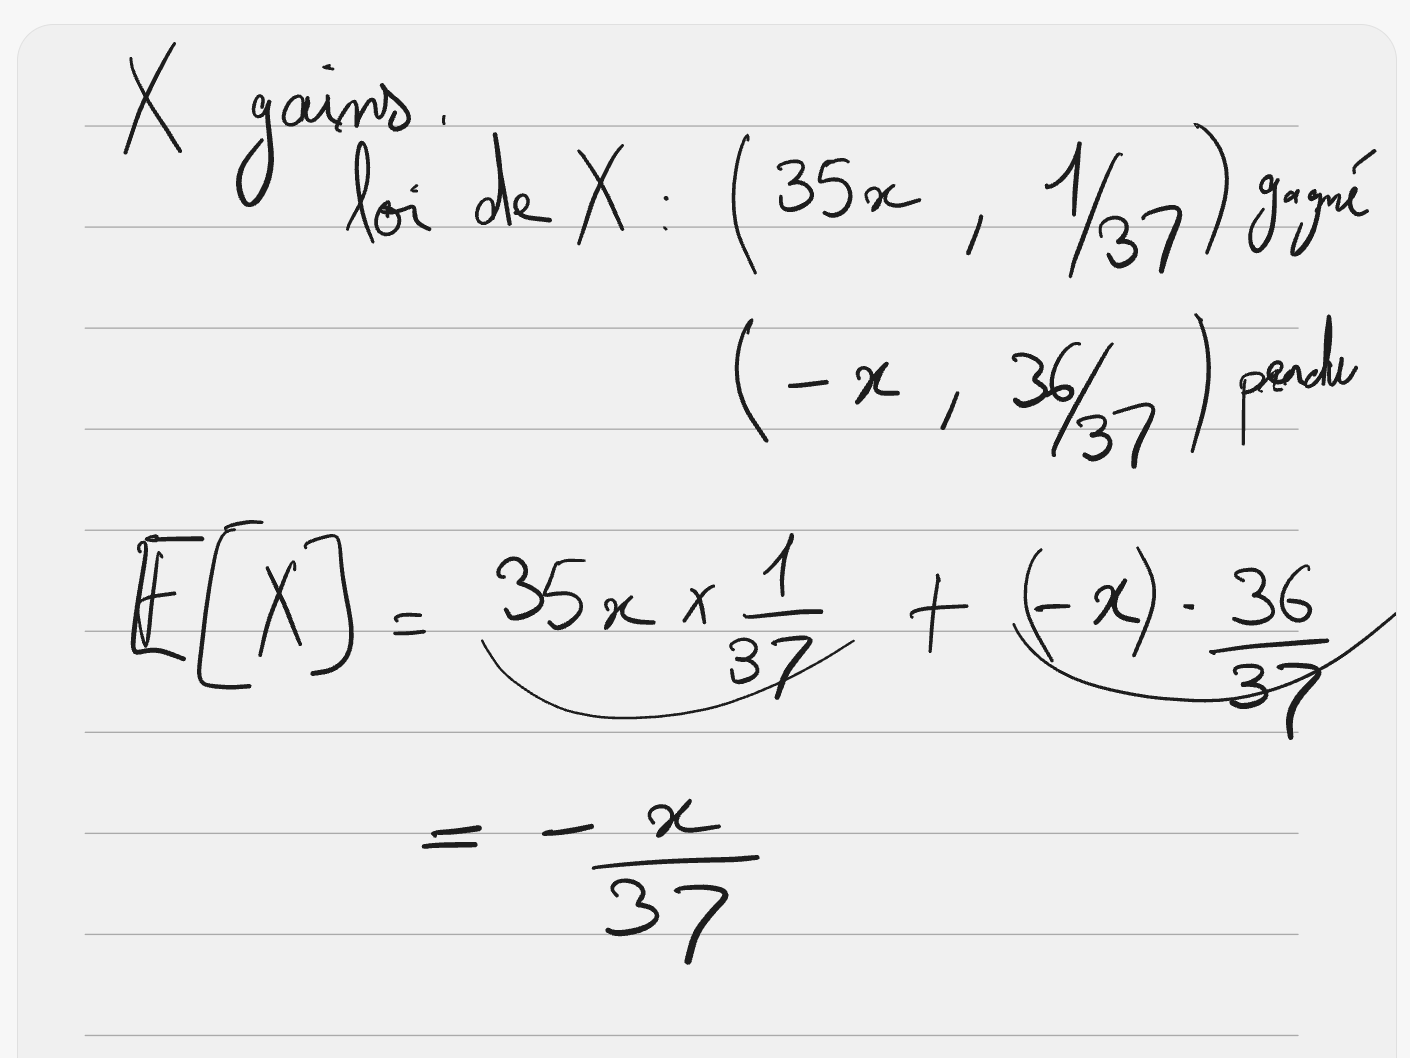 X gains.
loi de X : (35x, 1/37) gagné
(-x, 36/37) perdu
E[X] = 35x × 1/37 + (-x) · 36/37
= - x/37